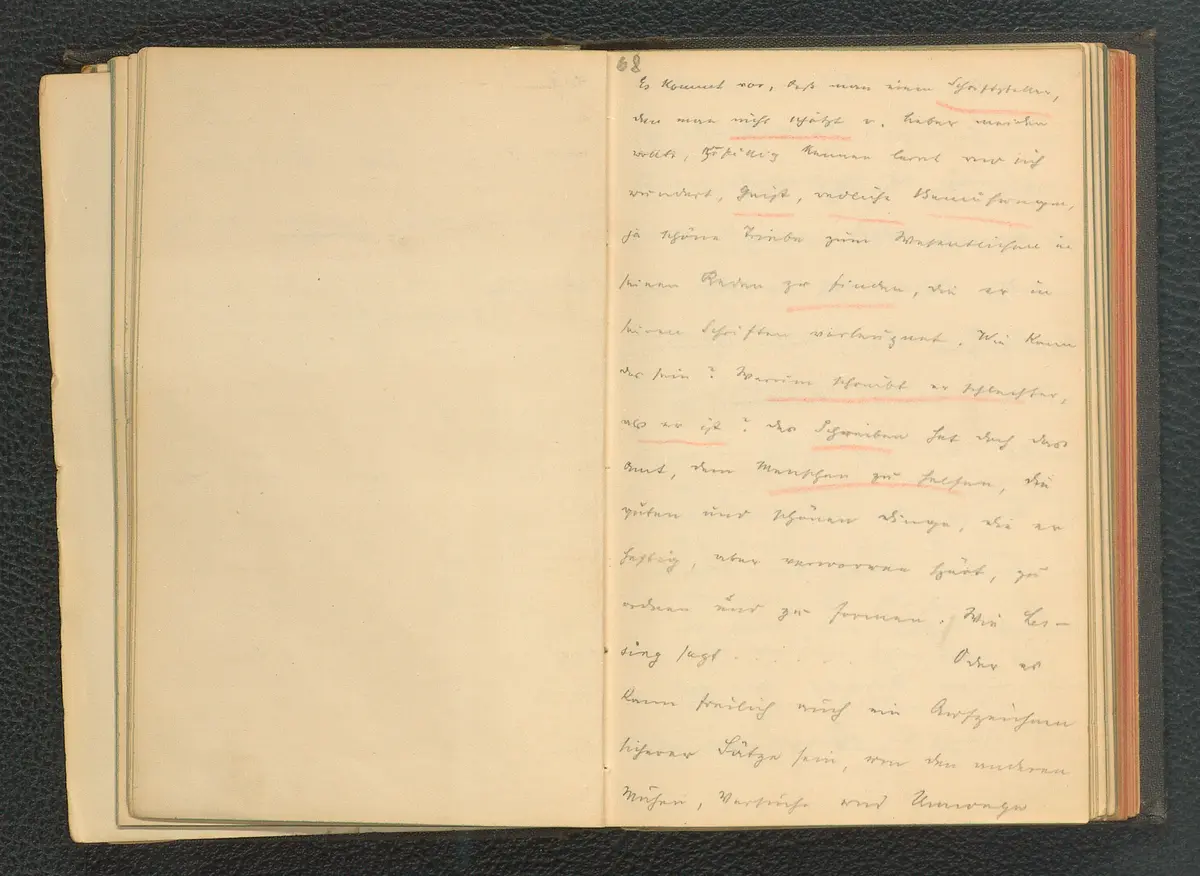 68
Es kommt vor, daß man einen Schriftsteller,
den man nicht schätzt u. lieber meiden
wollte, zufällig kennen lernt und sich
wundert, Geist, redliche Bemühungen,
ja schöne Triebe zum Wesentlichen in
seinen Reden zu finden, die er in
seinen Schriften verleugnet. Wie kann
das sein? Warum schreibt er schlechter,
als er ist? Das Schreiben hat doch das
Amt, dem Menschen zu helfen, die
guten und schönen Dinge, die er
heftig, aber verworren spürt, zu
ordnen und zu formen. Wie Les-
sing sagt . . . . . . . Oder es
kann freilich auch ein Aufzeichnen
sicherer Sätze sein, um den anderen
Mühen, Versuche und Umwege